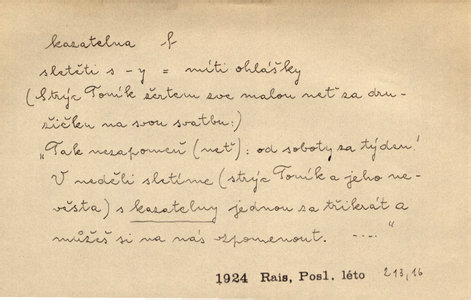 kazatelna f
sletěti s -y = míti ohlášky
(Strýc Toník žertem zve malou neť za dru-
žičku na svou svatbu:)
„Tak nezapomeň (neť): od soboty za týden!
V neděli sletíme (strýc Toník a jeho ne-
věsta) s kazatelny jednou za třikrát a
můžeš si na nás vzpomenout. ...."
1924 Rais, Posl. léto 213,16